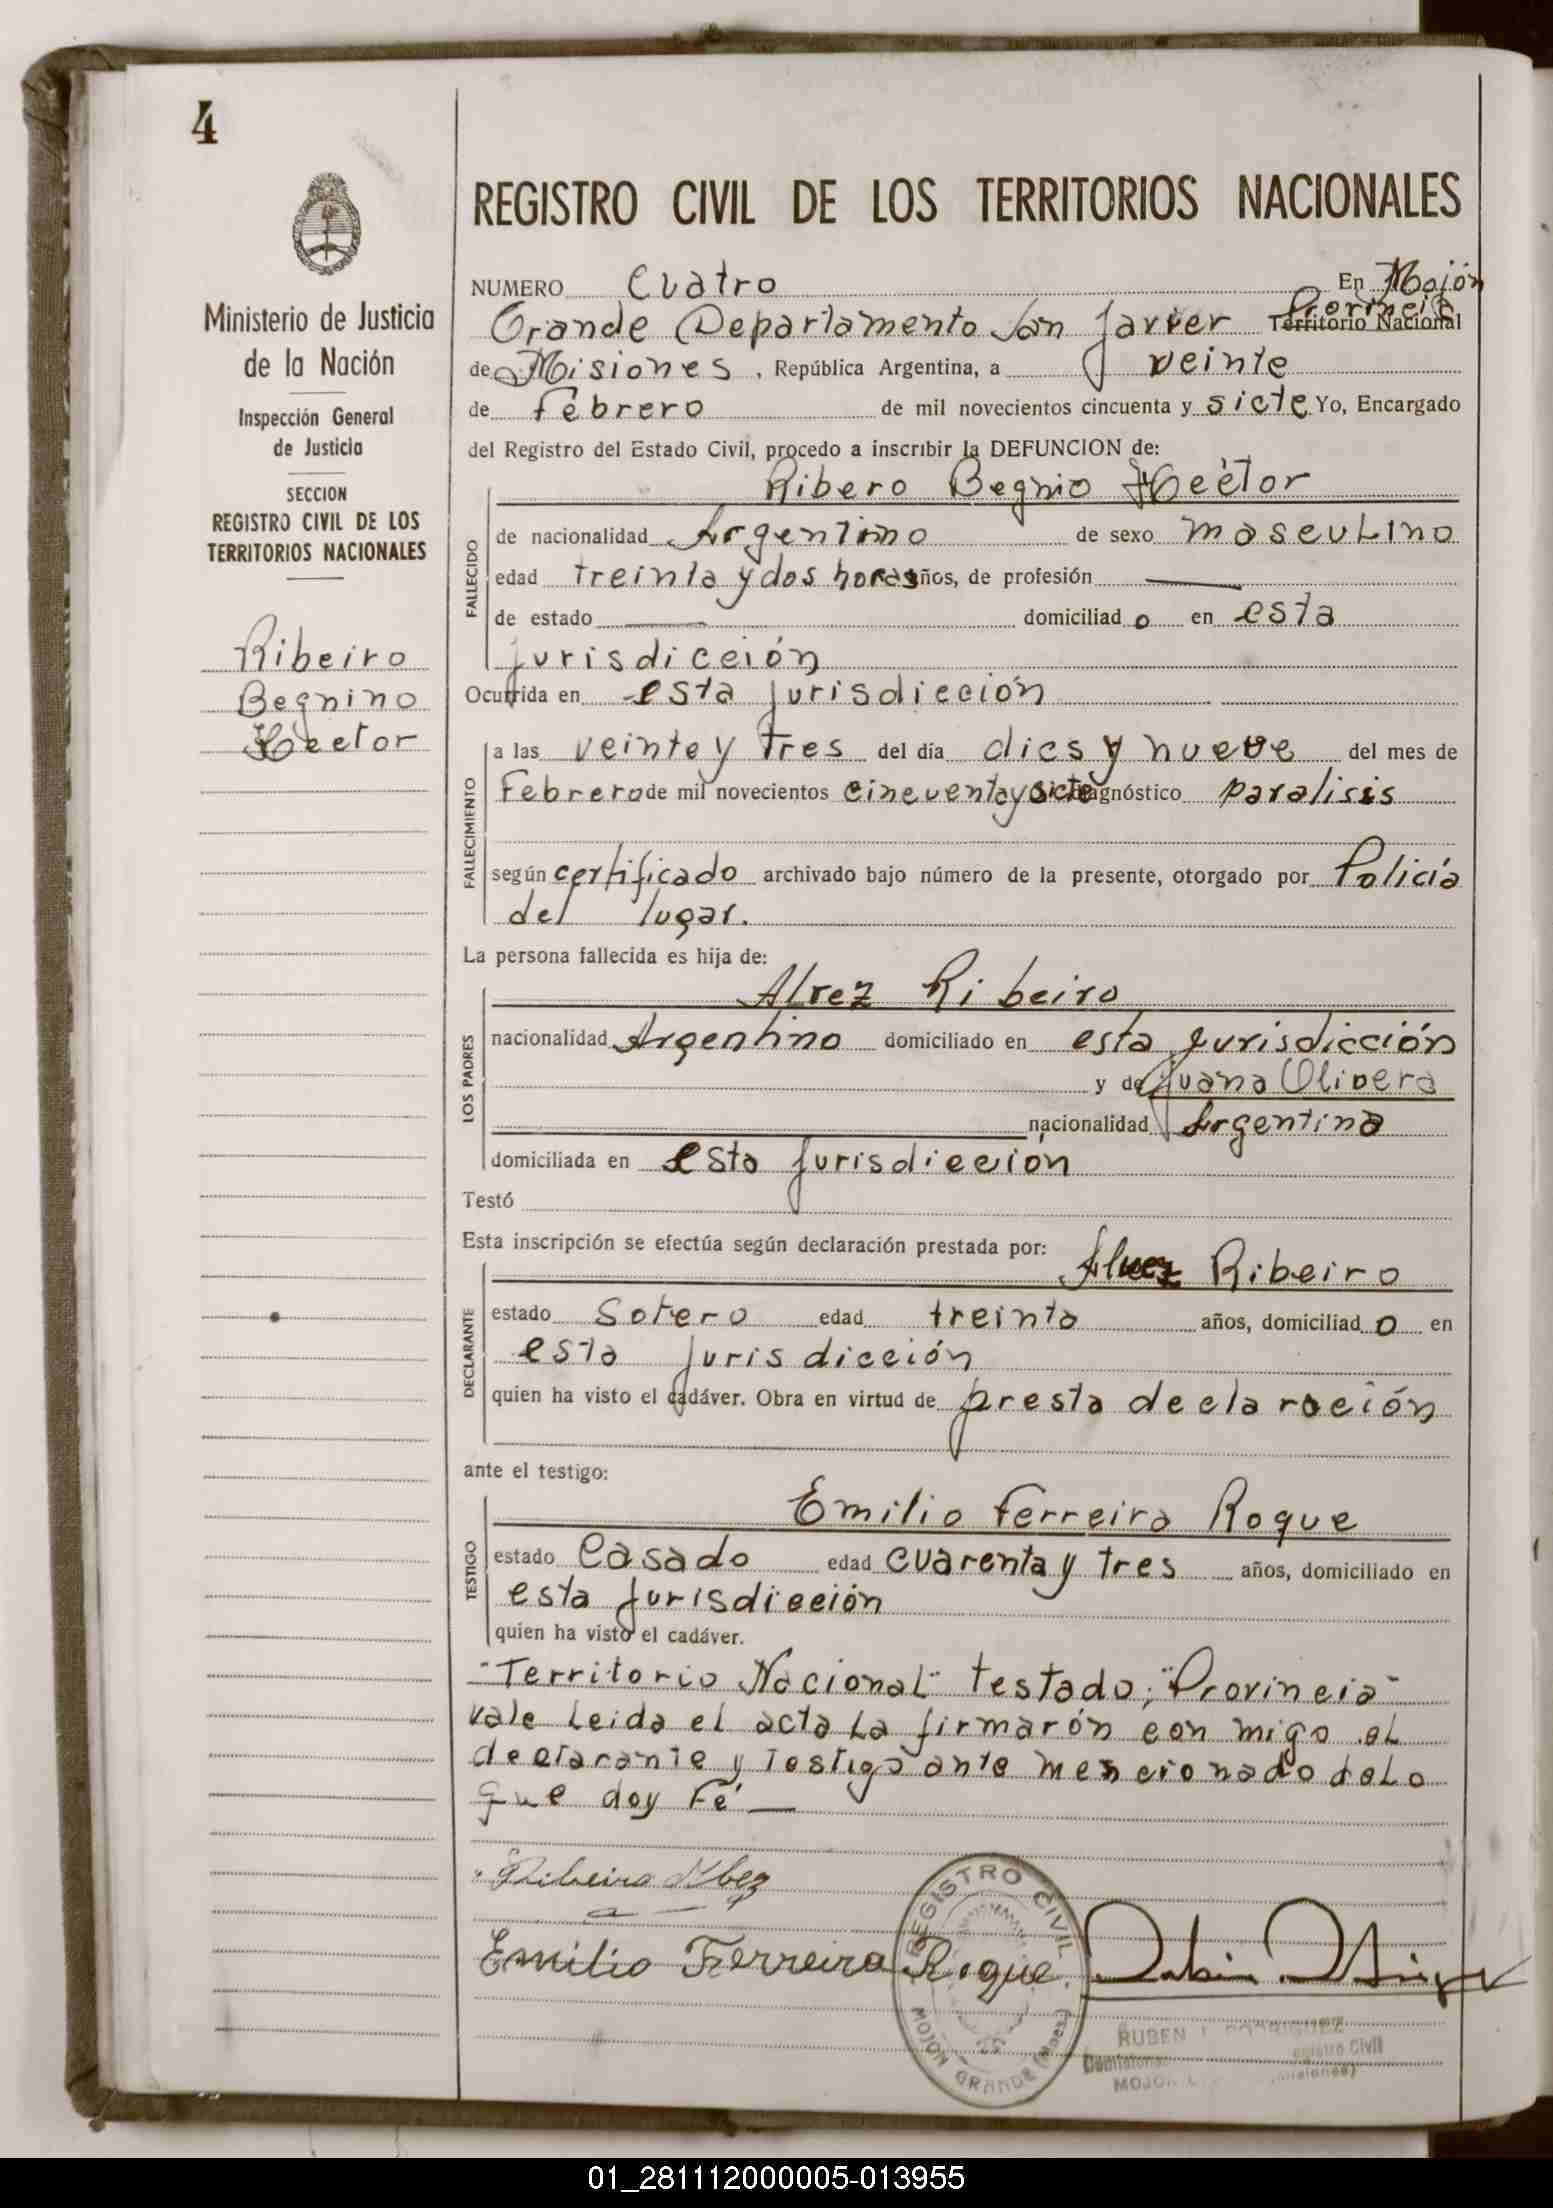 4
Ministerio de Justicia
de la Nación
Inspección General
de Justicia
SECCION
REGISTRO CIVIL DE LOS
TERRITORIOS NACIONALES
Ribeiro
Begnino
Hector
REGISTRO CIVIL DE LOS TERRITORIOS NACIONALES
NUMERO Cuatro En Mojón
Provincia
Grande Departamento San Javier Territorio Nacional
de Misiones, República Argentina, a veinte
de febrero de mil novecientos cincuenta y siete Yo, Encargado
del Registro del Estado Civil, procedo a inscribir la DEFUNCION de:
Ribero Begnio Hector
FALLECIDO
de nacionalidad Argentino de sexo masculino
edad treinta y dos horas años, de profesión —
de estado — domiciliad o en esta
jurisdicción
Ocurrida en esta jurisdicción
FALLECIMIENTO
a las veinte y tres del día dies y nueve del mes de
Febrero de mil novecientos cincuenta y siete diagnóstico paralisis
según certificado archivado bajo número de la presente, otorgado por Policía
del lugar.
La persona fallecida es hija de:
LOS PADRES
Alvez Ribeiro
nacionalidad Argentino domiciliado en esta jurisdicción
y de Juana Olivera
nacionalidad Argentina
domiciliada en esta jurisdicción
Testó
Esta inscripción se efectúa según declaración prestada por:
Alvez Ribeiro
DECLARANTE
estado Sotero edad treinta años, domiciliad o en
esta jurisdicción
quien ha visto el cadáver. Obra en virtud de presta declaración
ante el testigo:
TESTIGO
Emilio Ferreira Roque
estado Casado edad cuarenta y tres años, domiciliado en
esta jurisdicción
quien ha visto el cadáver.
"Territorio Nacional" testado; "Provincia"
vale leida el acta la firmarón con migo el
declarante y testigo ante mencionado delo
que doy Fé —
Ribeiro Albez
Emilio Ferreira Roque
REGISTRO CIVIL
MOJON GRANDE (Mnes.)
RUBEN RODRIGUEZ
Registro Civil
(Misiones)
01_281112000005-013955